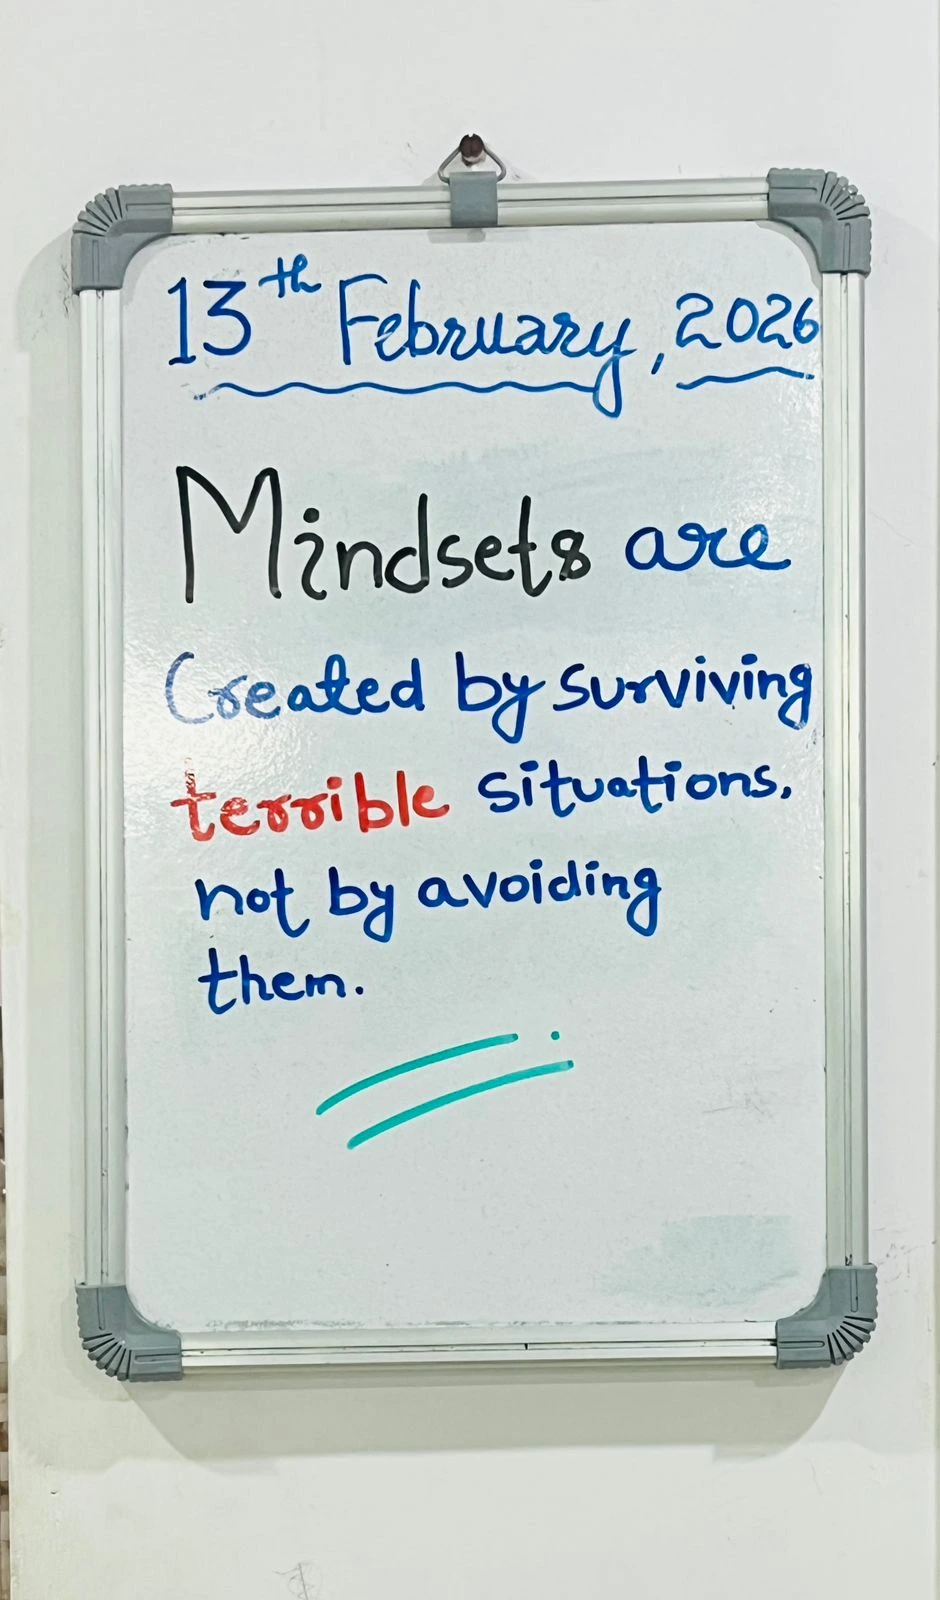 13th February, 2026
Mindsets are
Created by surviving
terrible situations,
not by avoiding
them.